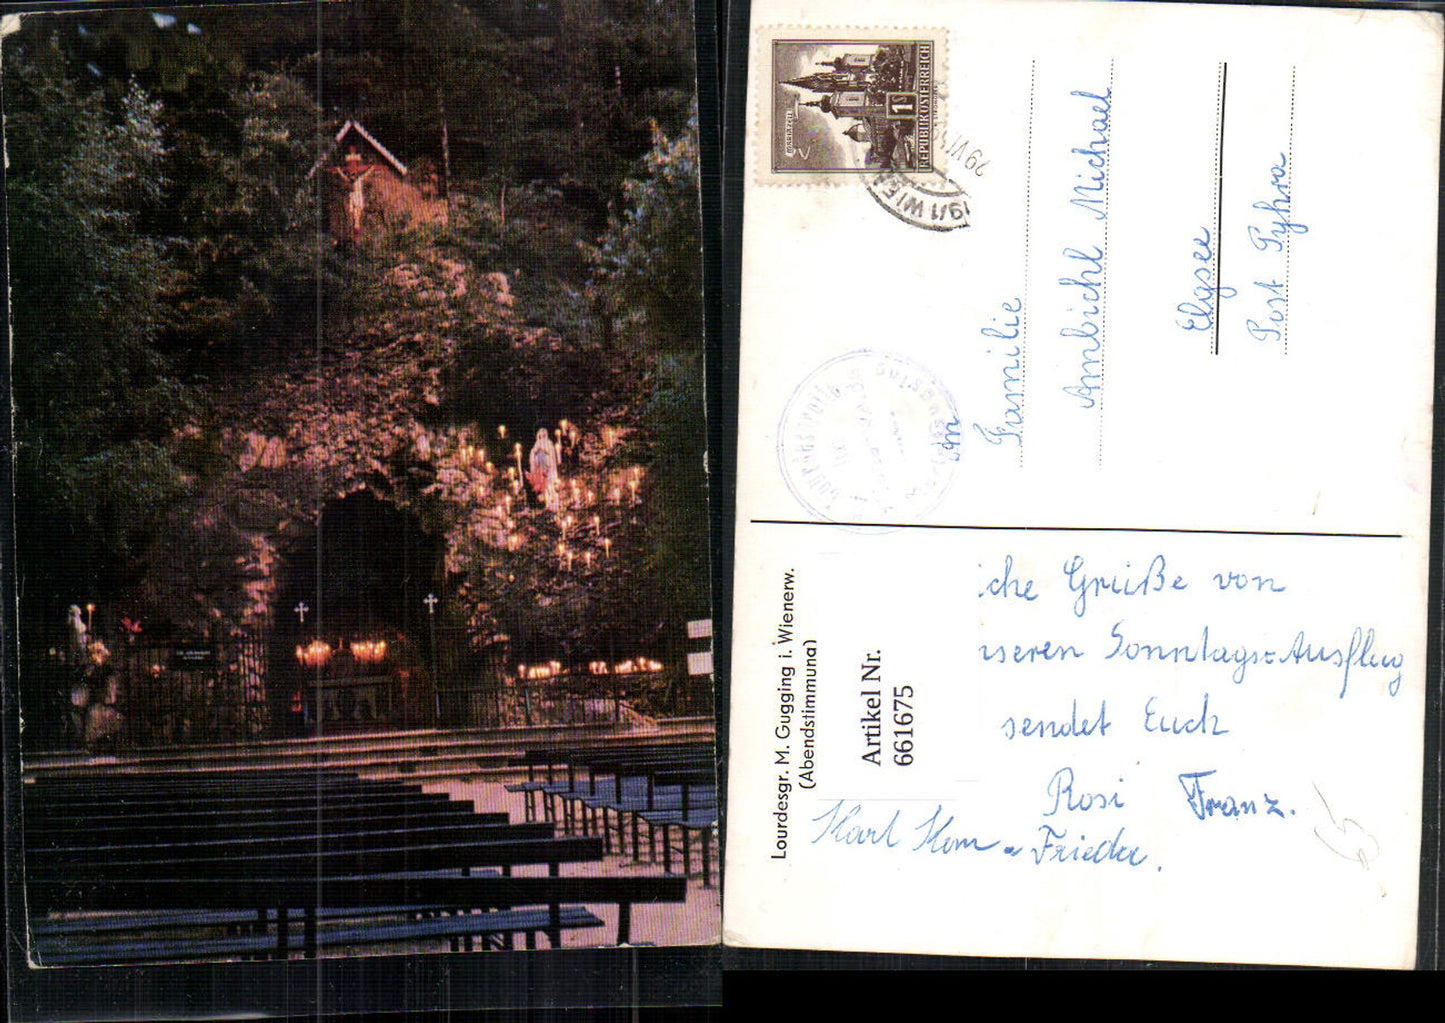 REPUBLIK ÖSTERREICH
1
MARIAZELL
29. VI.
Familie
Ambichl Michael
Elgsee
Post Pyhra
Lourdesgr. M. Gugging i. Wienerw.
(Abendstimmung)
Artikel Nr.
661675
iche Grüße von
nseren Sonntags=Ausflug
sendet Euch
Rosi Franz.
Karl Frieder.
65